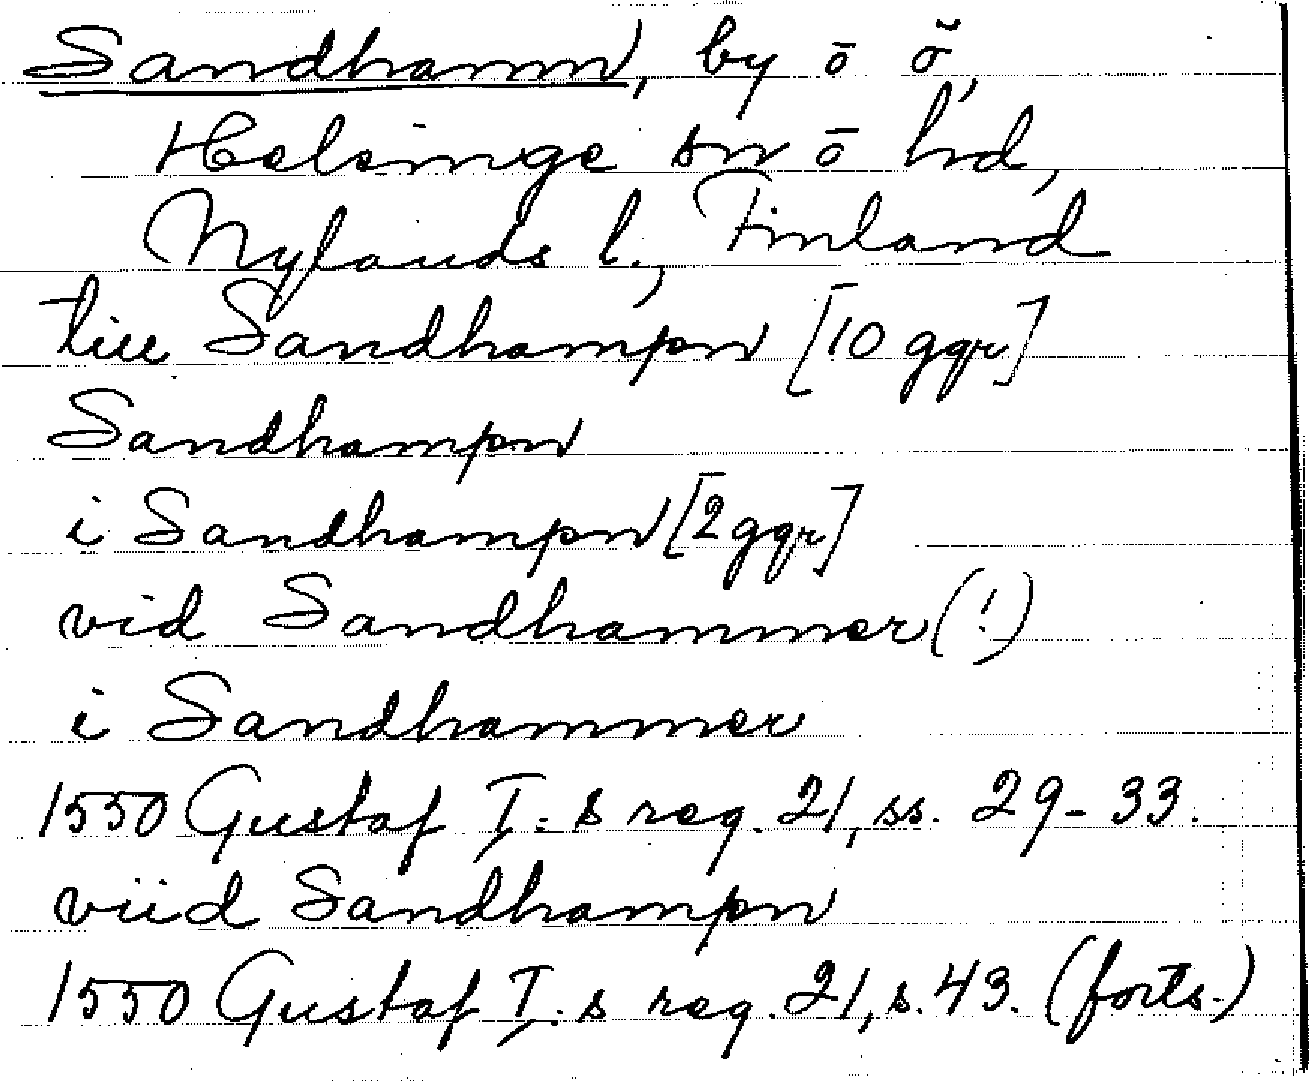 Sandhamn, by ō õ,
Helsinge sn ō hd,
Nylands l., Finland
till Sandhampn [10 ggr]
Sandhampn
i Sandhampn [2 ggr]
vid Sandhammer (!)
i Sandhammer
1550 Gustaf I:s reg. 21, ss. 29-33.
viid Sandhampn
1550 Gustaf I:s reg. 21, s. 43. (forts.)